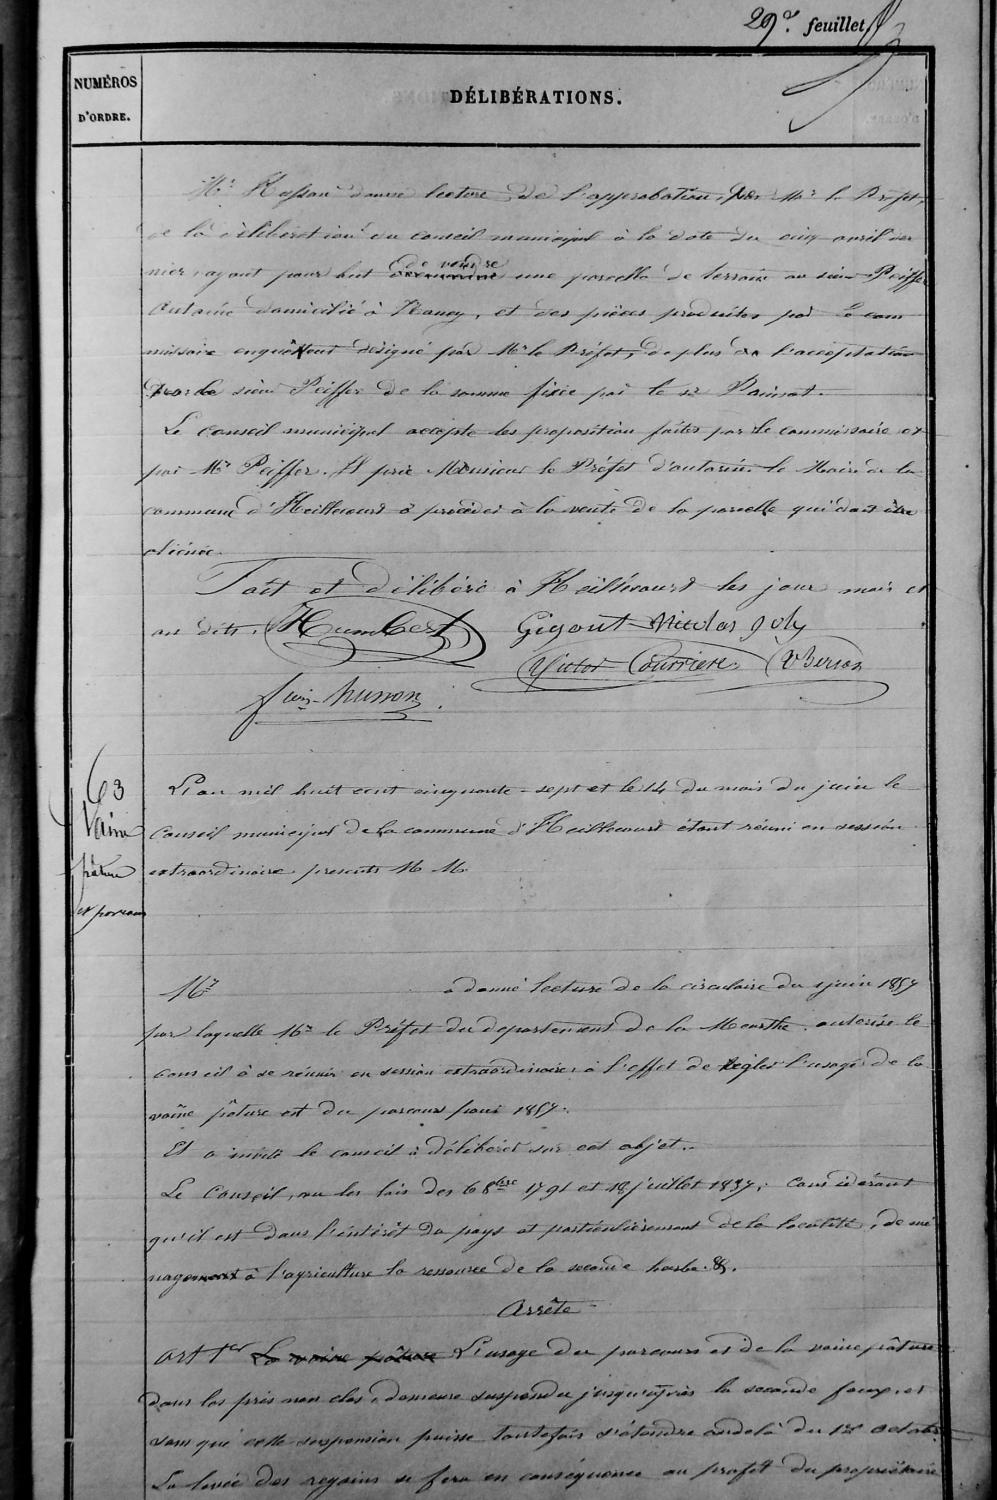 29e feuillet
NUMÉROS
D'ORDRE.
DÉLIBÉRATIONS.
Mr donne lecture de l'approbation, par Mr le Préfet,
de la délibération du conseil municipal à la date du cinq avril der
nier, ayant pour but de vendre une parcelle de terrain au sieur Peiffer
Antoine domicilié à Nancy, et des pièces produites par le com
missaire enquêteur désigné par Mr le Préfet, de plus de l'acceptation
par le sieur Peiffer de la somme fixée par le sr
Le conseil municipal accepte les proposition faites par le commissaire et
par Mr Peiffer. Il prie Monsieur le Préfet d'autoriser le Maire de la
commune d'Heillecourt à procéder à la vente de la parcelle qui doit être
aliénée.
Fait et délibéré à Heillecourt les jour mois et
an dits. Humbert Gigout Nicolas Joly
Victor Courrière V Berson
husson
63
Vaine
pâture
et parcours
L'an mil huit cent cinquante-sept et le 14 du mois du juin le
Conseil municipal de la commune d'Heillecourt étant réuni en session
extraordinaire présents M M
Mr a donné lecture de la circulaire du juin 1857
par laquelle Mr le Préfet du département de la Meurthe, autorise le
conseil à se réunir en session extraordinaire, à l'effet de régler l'usage de la
vaine pâture et du parcours pour 1857.
Et a invité le conseil à délibérer sur cet objet.
Le Conseil, vu les lois des 6 8bre 1791 et 18 juillet 1837; considérant
qu'il est dans l'intérêt du pays et particulièrement de la localité, de mé
nager à l'agriculture la ressource de la seconde herbe. &.
Arrête
Art 1er La vaine pâture L'usage du parcours et de la vaine pâture
dans les prés non clos, demeure suspendu jusqu'après la seconde faux, et
sans que cette suspension puisse toutefois s'étendre audelà du 1er octobre.
La levée des regains se fera en conséquence au profit du propriétaire